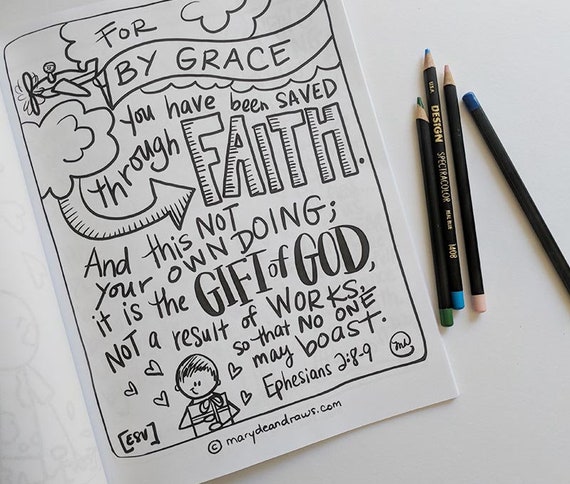 FOR
BY GRACE
you have been SAVED
through FAITH.
And this NOT
your OWN DOING;
it is the GIFT of GOD,
NOT a result of WORKS,
so that NO ONE
may boast.
Ephesians 2:8-9
[ESV]
© marydeandraws.com
USA
DESIGN
SPECTRACOLOR
1408